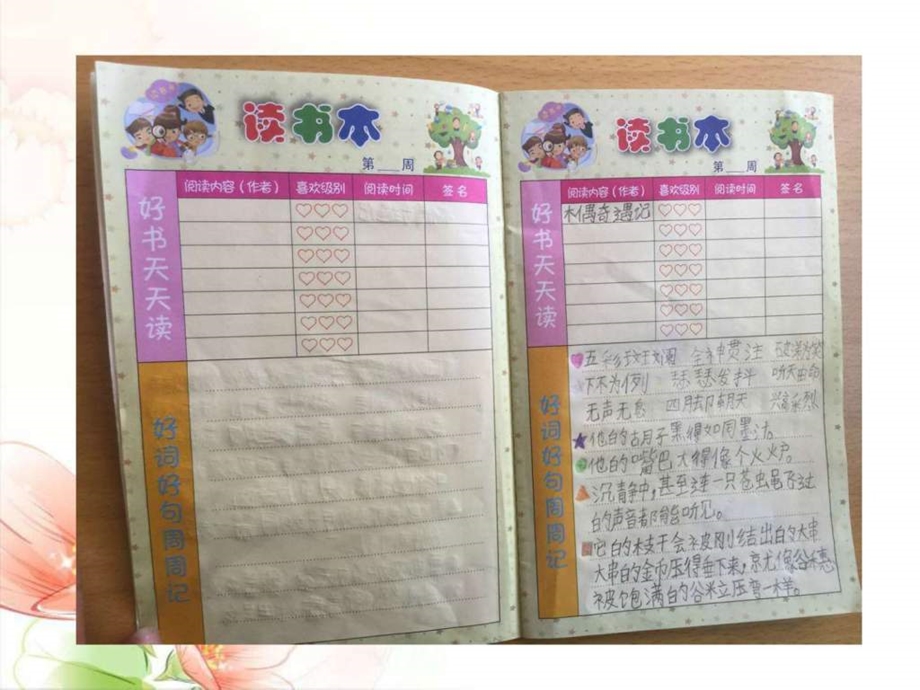 读书本
第___周
阅读内容（作者） 喜欢级别 阅读时间 签名
好书天天读
好词好句周周记
读书本
第___周
阅读内容（作者） 喜欢级别 阅读时间 签名
好书天天读
木偶奇遇记
好词好句周周记
五彩斑斓 全神贯注 破涕为笑
下不为例 瑟瑟发抖 听天由命
无声无息 四脚朝天 兴高采烈
他的胡子黑得如同墨汁。
他的嘴巴大得像个火炉
沉静中，甚至连一只苍虫黾飞过
的声音都能听见。
它的枝干会被刚结出的大串
大串的金币压得垂下来，就像谷穗
被饱满的谷米立压弯一样。